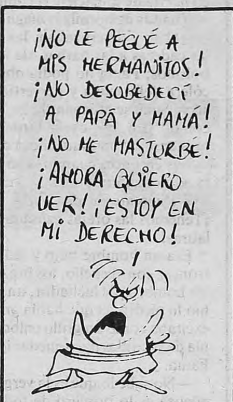 ¡NO LE PEGUÉ A
MIS HERMANITOS!
¡NO DESOBEDECÍ
A PAPÁ Y MAMÁ!
¡NO ME MASTURBÉ!
¡AHORA QUIERO
VER! ¡ESTOY EN
MI DERECHO!